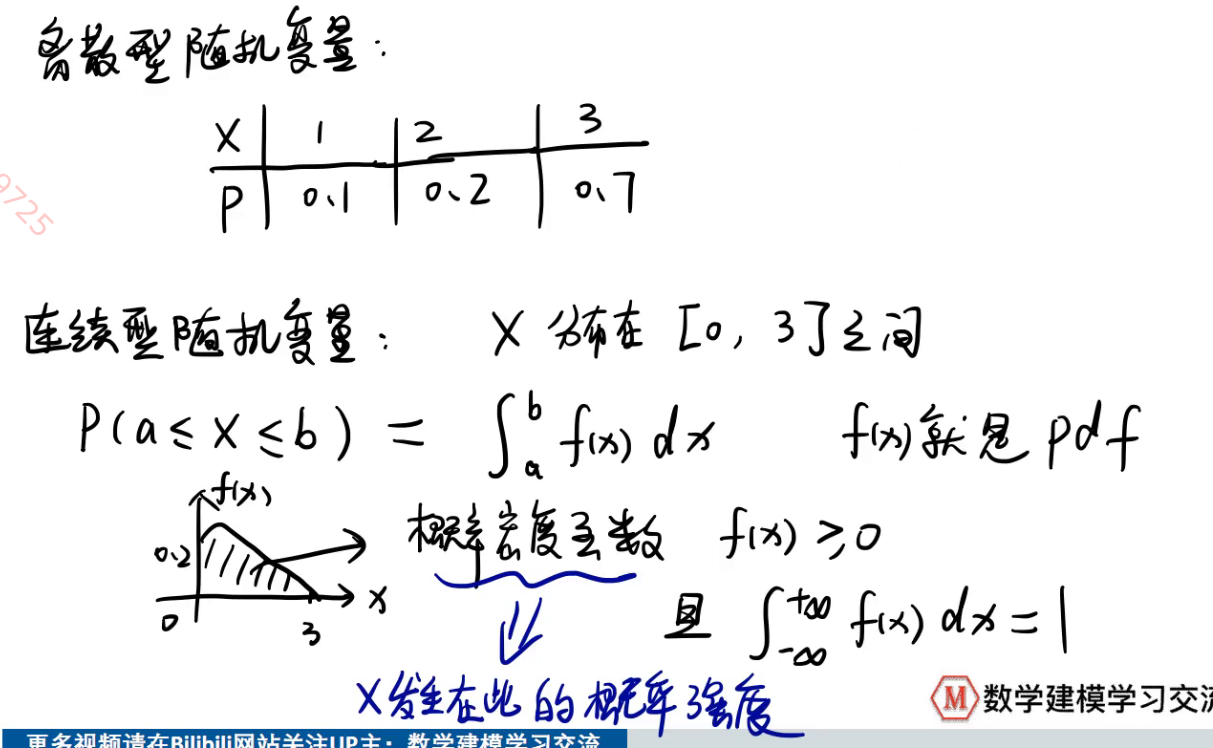 离散型随机变量:
X 1 2 3
P 0.1 0.2 0.7
9725
连续型随机变量: X 分布在 [0, 3]之间
P(a≤X≤b) = ∫_a^b f(x) dx f(x)就是pdf
f(x)
0.2
0 3 x
概率密度函数 f(x)≥0
且 ∫_{-∞}^{+∞} f(x) dx = 1
X发生在此的概率强度
M 数学建模学习交流
更多视频请在Bilibili网站关注UP主:数学建模学习交流